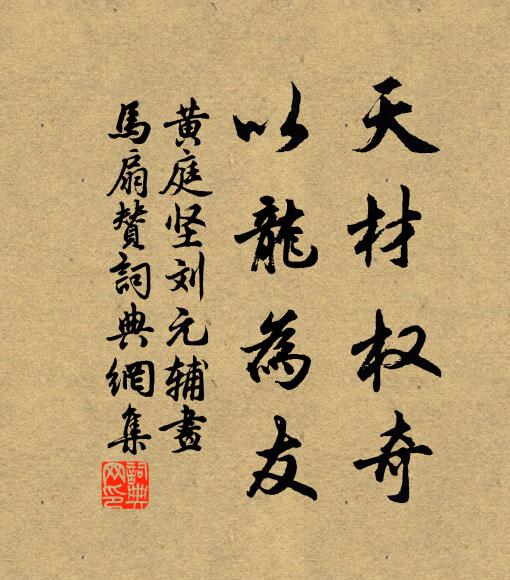 天材权奇
以龍為友
黄庭坚刘元辅畫
馬扇赞詞典網集
詞典网印